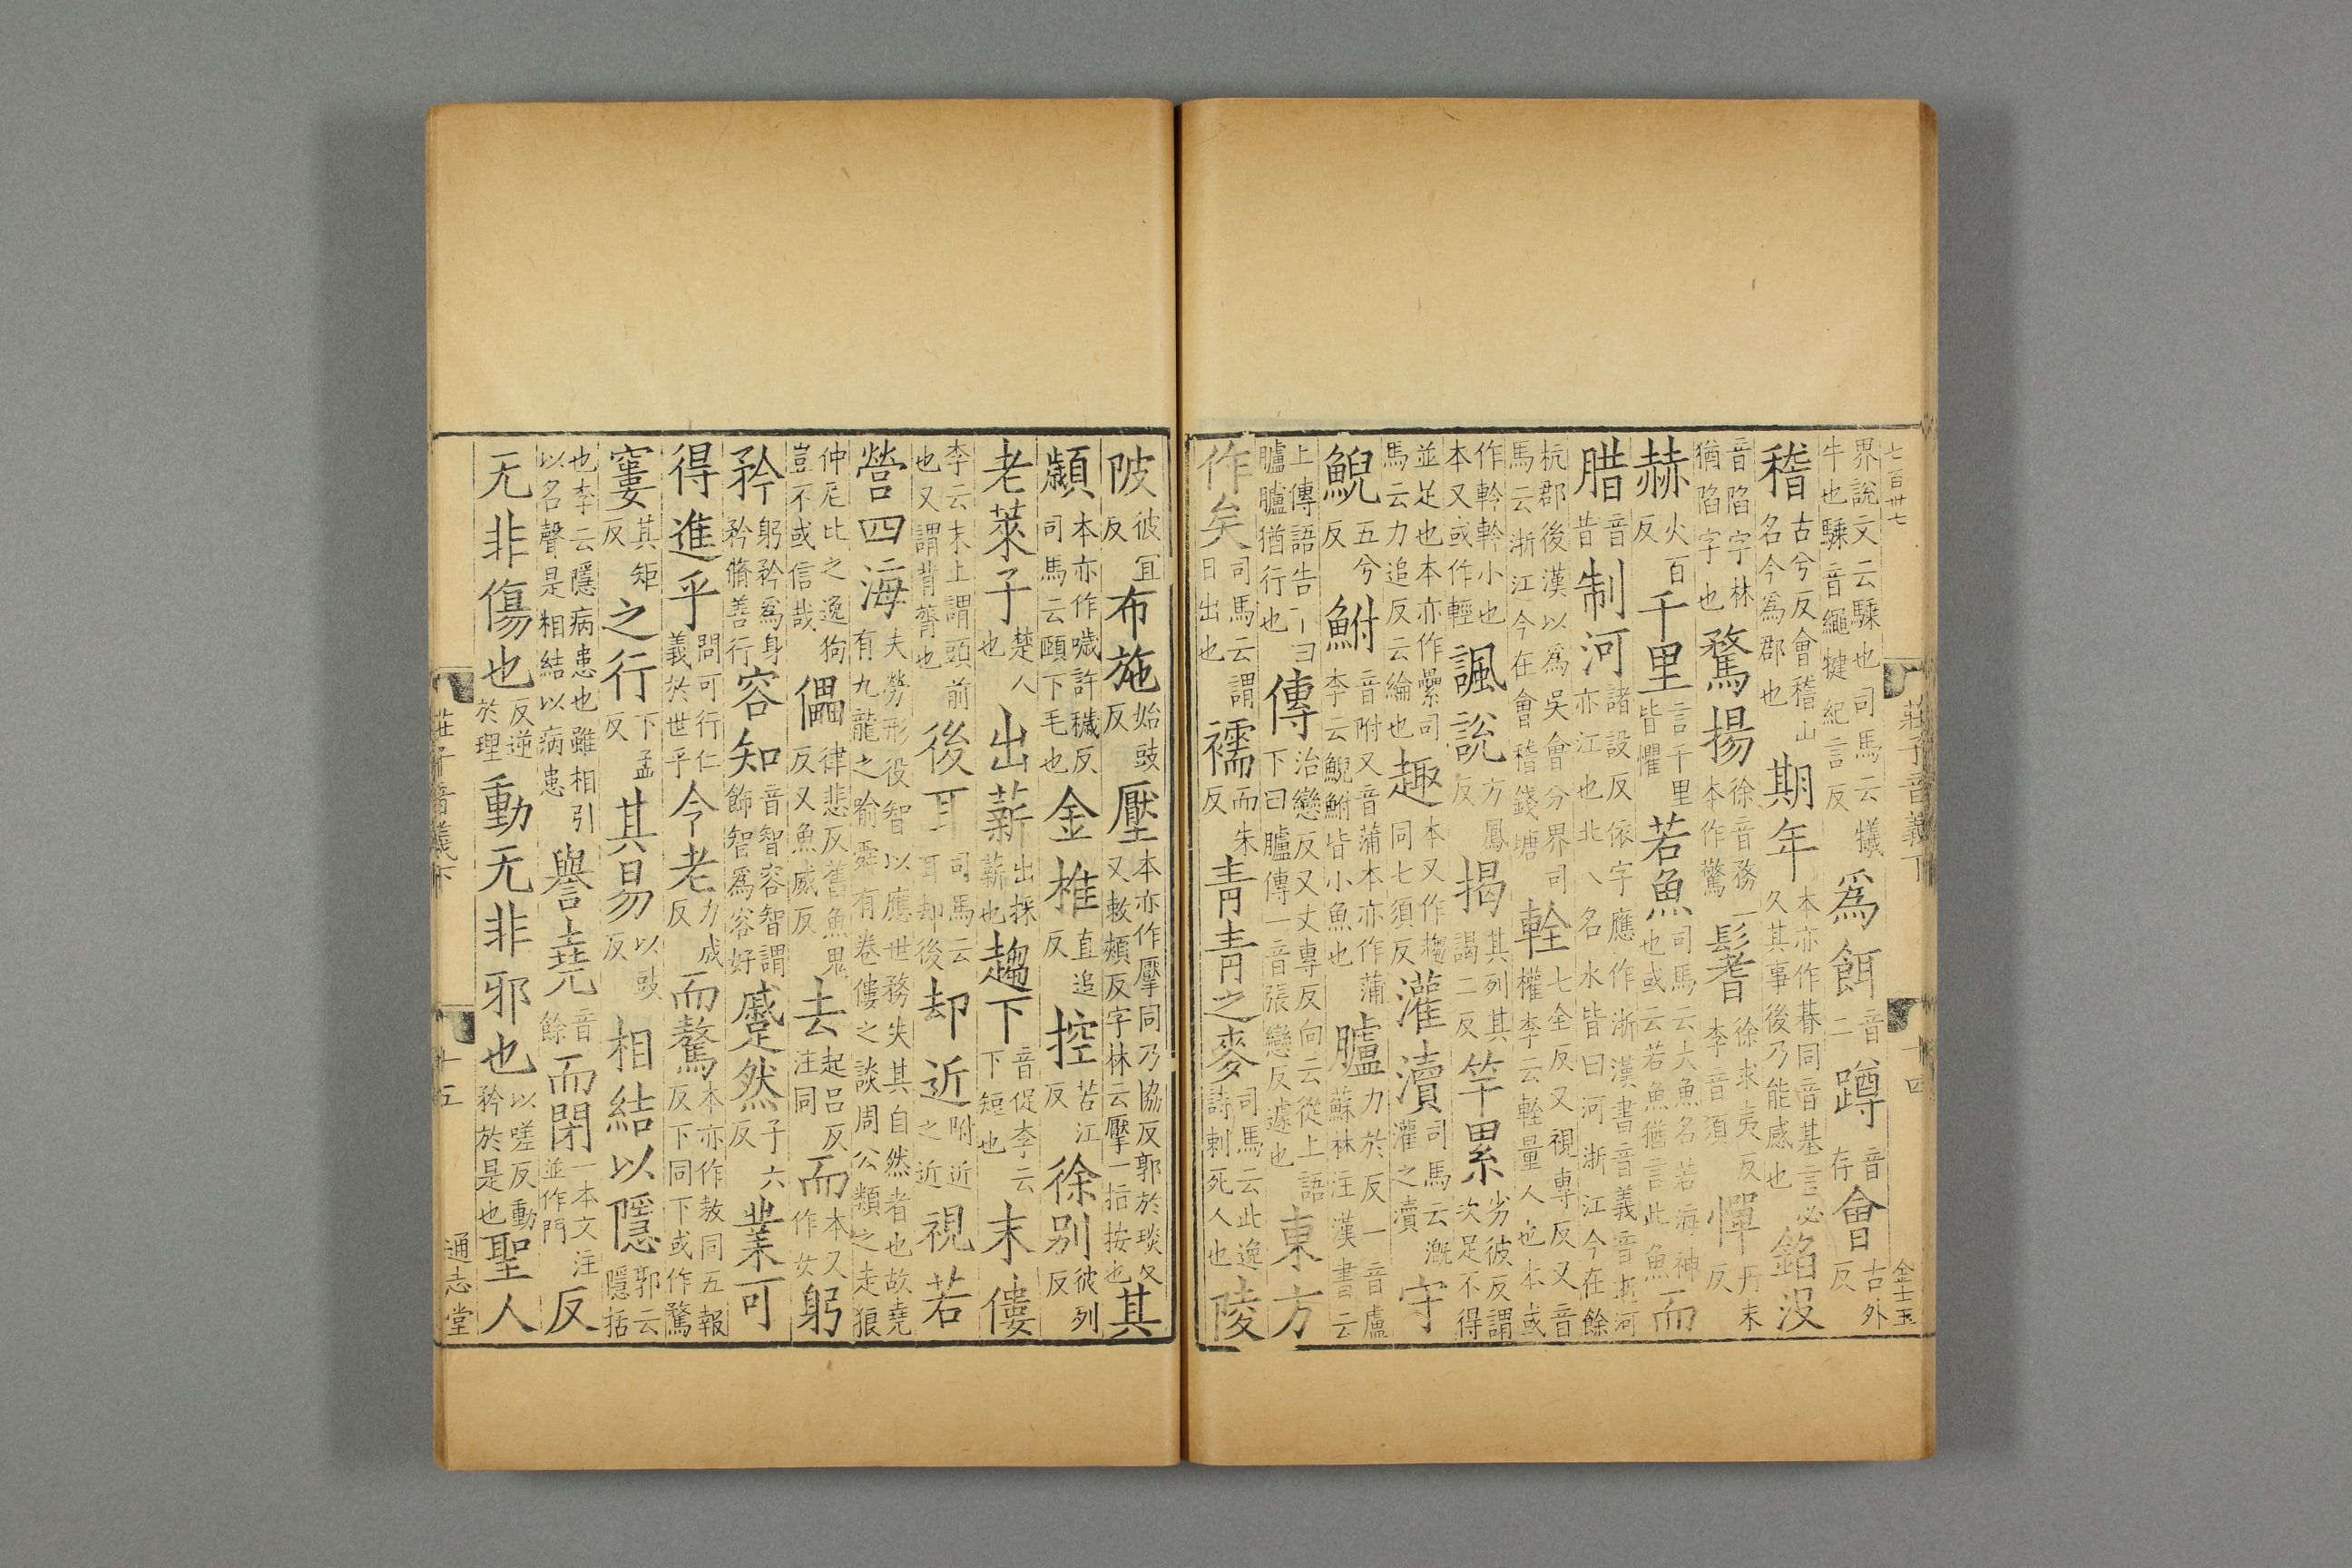 七百卅七
界說文云騬也司馬云犧牛也騬音繩犍紀言反 爲餌音二蹲音存會古外反
稽古兮反會稽山名今爲郡也 期年本亦作朞同音基言必久其事後乃能感也 錎沒
音陷字林猶陷字也 騖揚徐音務一本作驚 鬐徐求夷反李音須 憚丹末反
赫火百反千里言千里皆懼 若魚司馬云大魚名若海神也或云若魚猶言此魚 而
腊音昔 制河諸設反依字應作浙漢書音義音逝河亦江也北人名水皆曰河浙江今在餘
杭郡後漢以爲吳會分界司馬云浙江今在會稽錢塘 輇七全反又視專反又音權李云輇量人也本或
作軨軨小也本又或作輕 諷說方鳳反 揭其列其謁二反 竿累劣彼反謂次足不得
並足也本亦作纍司馬云力追反云綸也 趣本又作趨同七須反 灌瀆司馬云溉灌之瀆 守
鯢五兮反 鮒音附又音蒲本亦作蒲李云鯢鮒皆小魚也 臚力於反一音盧蘇林注漢書云
上傳語告下曰臚臚猶行也 傳治戀反又丈專反向云從上語下曰臚傳一音張戀反遽也 東方
作矣司馬云謂日出也 襦而朱反 青青之麥司馬云此逸詩刺死人也 陵
莊子音義下 十四 金士玉
陂彼宜反 布施始豉反 壓本亦作擪同乃協反郭於琰反又敕頰反字林云擪一指按也 其
顪本亦作噦許穢反司馬云頤下毛也 金椎直追反 控苦江反 徐別彼列反
老萊子楚人也 出薪出採薪也 趨下音促李云下短也 末僂
李云末上謂頭前也又謂背膂也 後耳司馬云耳却後 却近附近之近 視若
營四海夫勞形役智以應世務失其自然者也故堯有九龍之喻舜有卷僂之談周公類之走狼
仲尼比之逸狗豈不或信哉 儡律悲反舊魚鬼反又魚威反 去起呂反注同 而本又作女 躬
矜躬矜爲身矜脩善行 容知音智容智謂飾智爲容好 蹙然子六反 業可
得進乎問可行仁義於世乎 今老力成反 而驁本亦作敖同五報反下同下或作騖
窶其矩反 之行下孟反 其易以豉反 相結以隱郭云隱括
也李云隱病患也雖相引以名聲是相結以病患 譽堯音餘 而閉一本文注並作門 反
无非傷也反逆於理 動无非邪也以嗟反動矜於是也 聖人
莊子音義下 十五 通志堂